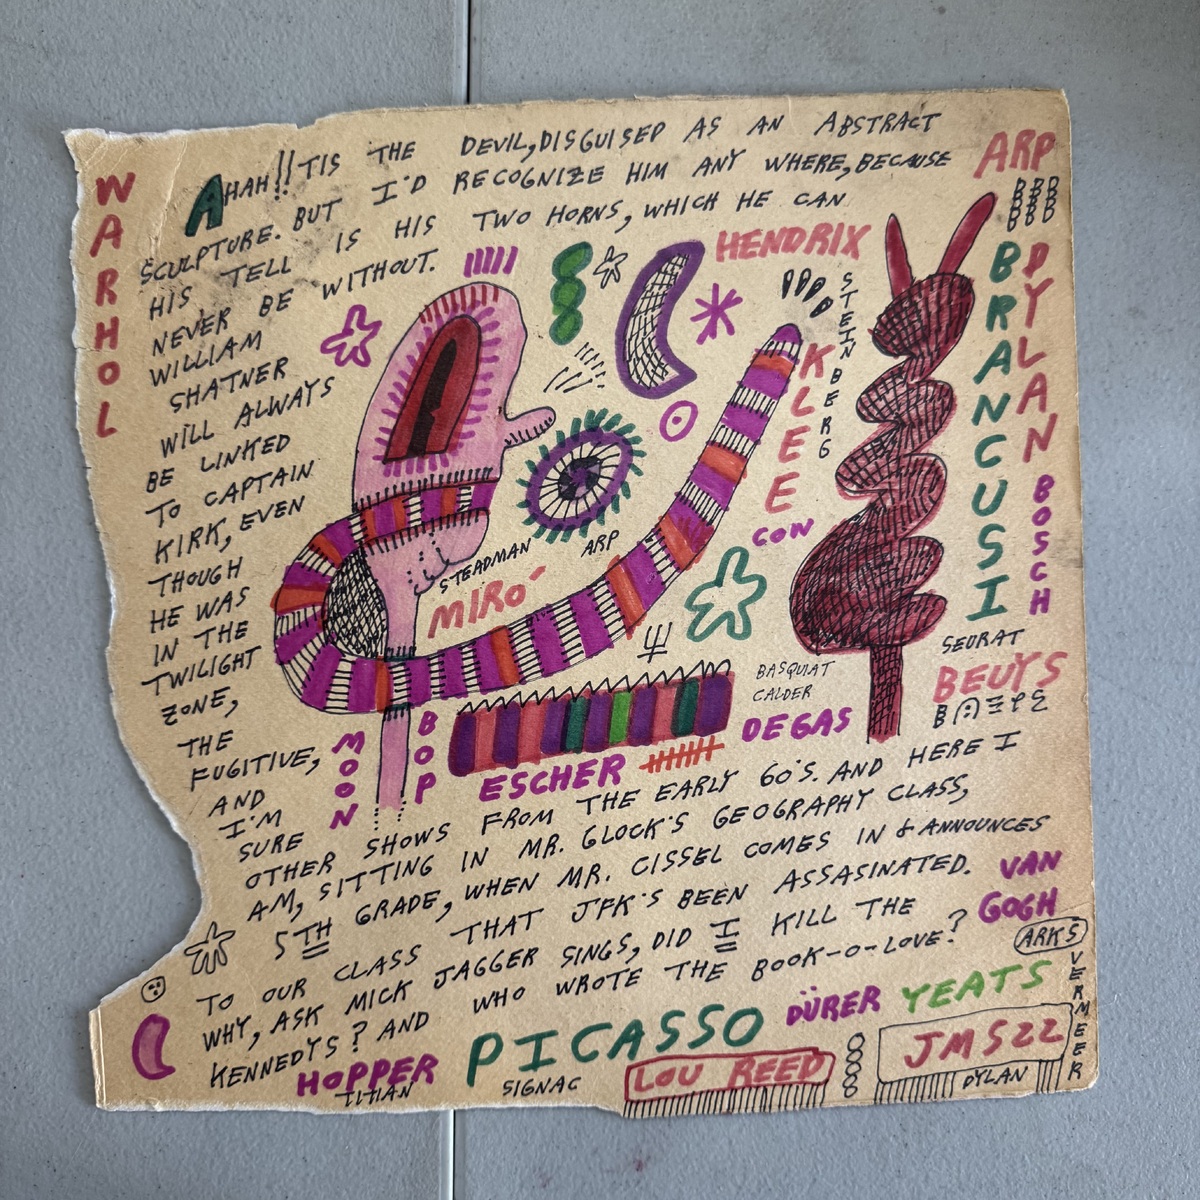 AHAH!! TIS THE DEVIL, DISGUISED AS AN ABSTRACT
SCULPTURE. BUT I'D RECOGNIZE HIM ANY WHERE, BECAUSE
HIS TELL IS HIS TWO HORNS, WHICH HE CAN
NEVER BE WITHOUT.
WILLIAM
SHATNER
WILL ALWAYS
BE LINKED
TO CAPTAIN
KIRK, EVEN
THOUGH
HE WAS
IN THE
TWILIGHT
ZONE,
THE
FUGITIVE,
AND
I'M
SURE
OTHER SHOWS FROM THE EARLY 60'S. AND HERE I
AM, SITTING IN MR. GLOCK'S GEOGRAPHY CLASS,
5TH GRADE, WHEN MR. CISSEL COMES IN & ANNOUNCES
TO OUR CLASS THAT JFK'S BEEN ASSASINATED.
WHY, ASK MICK JAGGER SINGS, DID I KILL THE
KENNEDYS? AND WHO WROTE THE BOOK-O-LOVE?
WARHOL
ARP
HENDRIX
STEINBERG
KLEE
CON
BRANCUSI
DYLAN
BOSCH
STEADMAN
ARP
MIRÓ
SEURAT
BEUYS
BASQUIAT
CALDER
DEGAS
MOON
BOP
ESCHER
VAN
GOGH
ARKS
VERMEER
YEATS
DÜRER
PICASSO
HOPPER
TITIAN
SIGNAC
LOU REED
JMS22
DYLAN